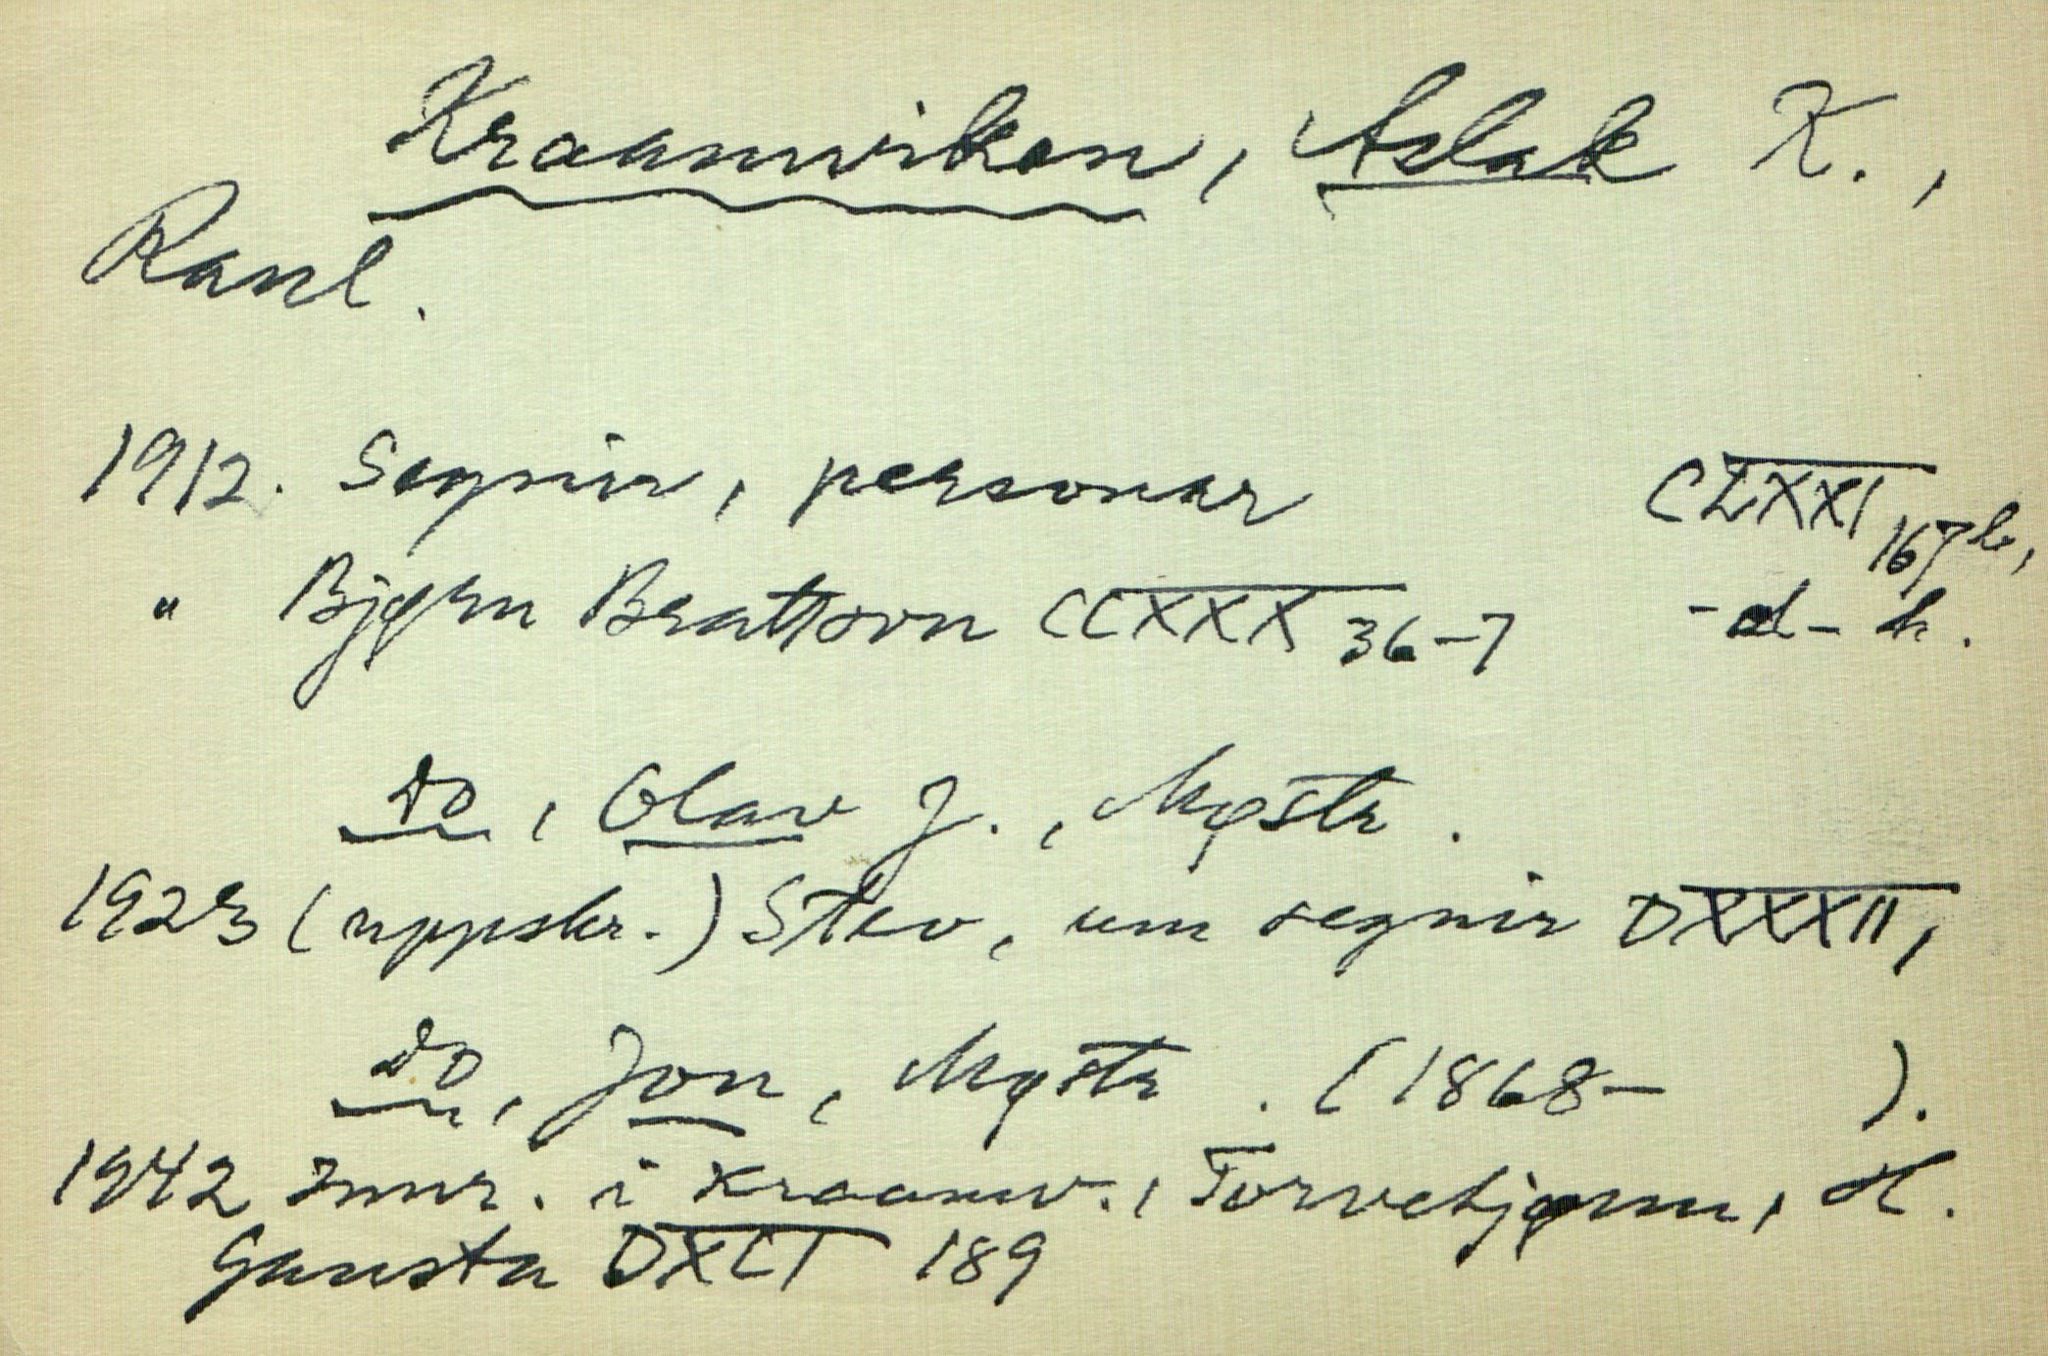 Kraamviken, Aslak K.,
Raul.
1912. Segnir, personar CLXXI 167b,
" Bjørn Brattson CCXXX 36-7 -d-h.
Do, Olav J., Møstr.
1923 (uppskr.) Stev, um segnir DXXXII,
Do, Jon, Møstr. (1868- ).
1942 Innr. i Kraamv., Torvetjørnn, H.
Gausta DXCI 189